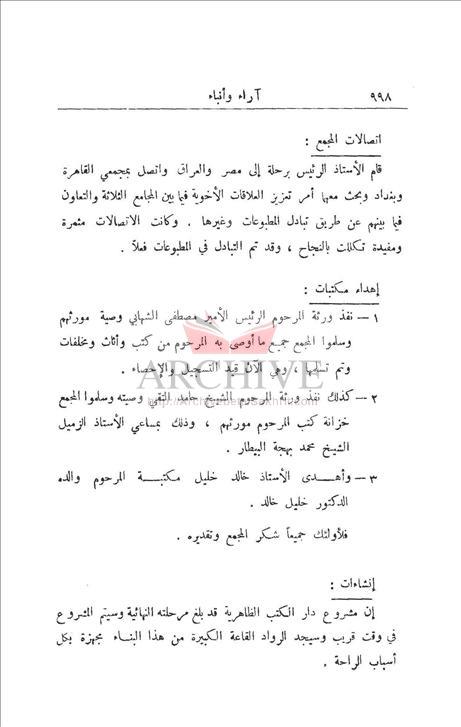 ٩٩٨
آراء وأنباء
اتصالات المجمع :
قام الأستاذ الرئيس برحلة إلى مصر والعراق واتصل بمجمعي القاهرة
وبغداد وبحث معهما أمر تعزيز العلاقات الأخوية فيما بين المجامع الثلاثة والتعاون
فيما بينهم عن طريق تبادل المطبوعات وغيرها . وكانت الاتصالات مثمرة
ومفيدة تكللت بالنجاح ، وقد تم التبادل في المطبوعات فعلاً .
إهداء مكتبات :
١ — نفذ ورثة المرحوم الرئيس الأمير مصطفى الشهابي وصية مورثهم
وسلموا المجمع جميع ما أوصى به المرحوم من كتب وأثاث ومخلفات
وتم تسلمها ، وهي الآن قيد التسجيل والإحصاء .
ARCHIVE
٢ — كذلك نفذ ورثة المرحوم الشيخ حامد التقي وصيته وسلموا المجمع
خزانة كتب المرحوم مورثهم ، وذلك بمساعي الأستاذ الزميل
الشيخ محمد بهجة البيطار .
٣ — وأهدى الأستاذ خالد خليل مكتبة المرحوم والده
الدكتور خليل خالد .
فلأولئك جميعاً شكر المجمع وتقديره .
إنشاءات :
إن مشروع دار الكتب الظاهرية قد بلغ مرحلته النهائية وسيتم المشروع
في وقت قريب وسيجد الرواد القاعة الكبيرة من هذا البناء مجهزة بكل
أسباب الراحة .